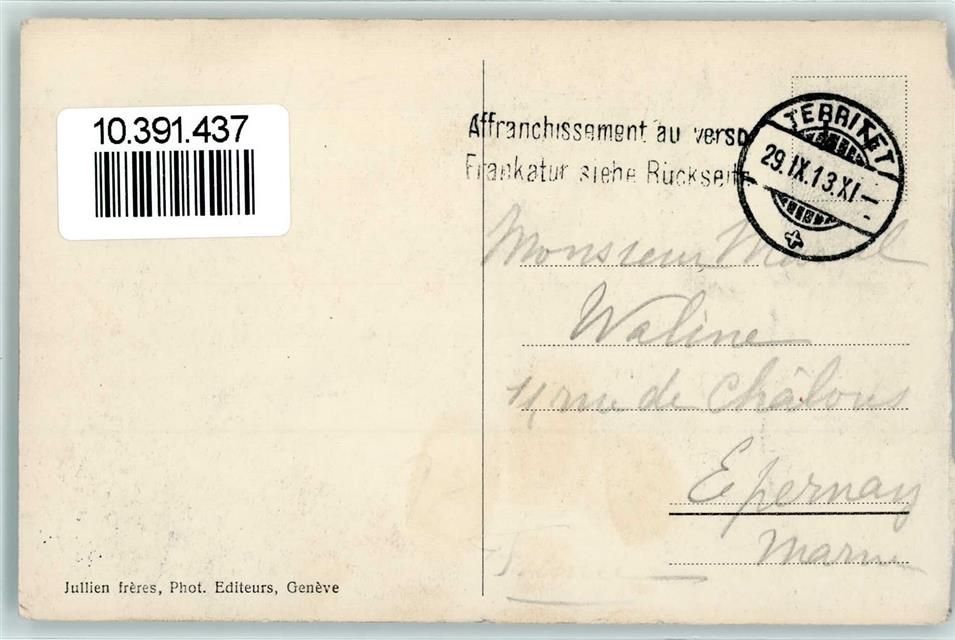 10.391.437
Affranchissement au verso
Frankatur siehe Rückseite
TERRITET
29.IX.13.XI
Monsieur Marcel
Waline
11, rue de Châlons
Epernay
Marne
Jullien frères, Phot. Editeurs, Genève